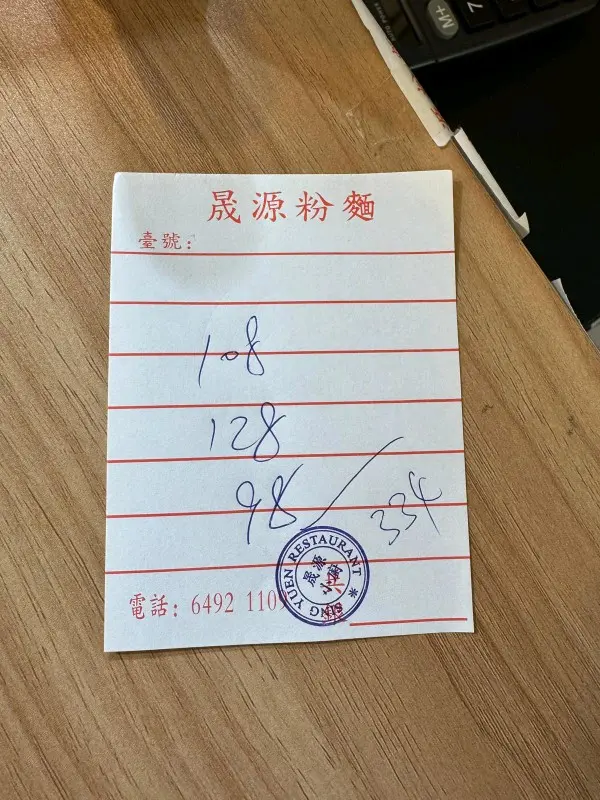 晟源粉麵
臺號：
108
128
98
334
SING YUEN RESTAURANT
晟源
電話：6492 110
M+
7